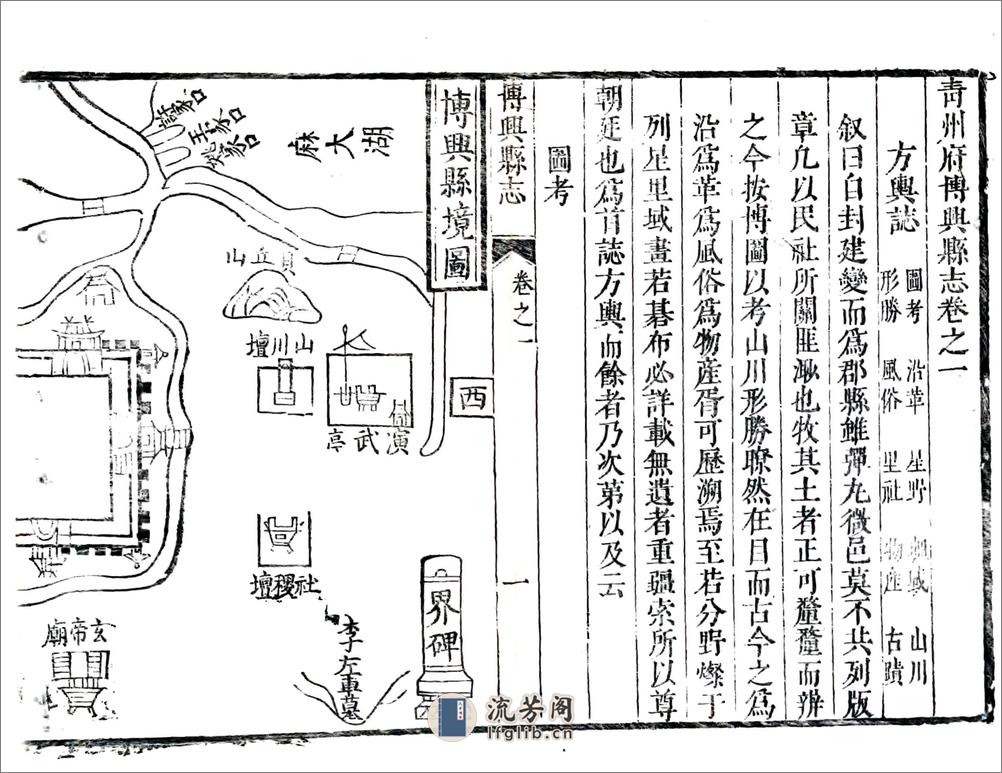 青州府博興縣志卷之一
方輿誌
圖考 沿革 星野 域 山川
形勝 風俗 里社 物產 古蹟
叙曰自封建變而爲郡縣雖彈丸微邑莫不共列版
章凡以民社所關匪渺也牧其土者正可釐釐而辨
之今按博圖以考山川形勝瞭然在目而古今之爲
沿爲革爲風俗爲物產胥可歷溯焉至若分野燦于
列星里域畫若碁布必詳載無遺者重疆索所以尊
朝廷也爲首誌方輿而餘者乃次第以及云
圖考
博興縣志
卷之一
一
博興縣境圖
西
界碑
湖大麻
家口
王家口
家口
貝丘山
山川壇
演武亭
社稷壇
李左車墓
玄帝廟
流芳阁
lfglib.cn